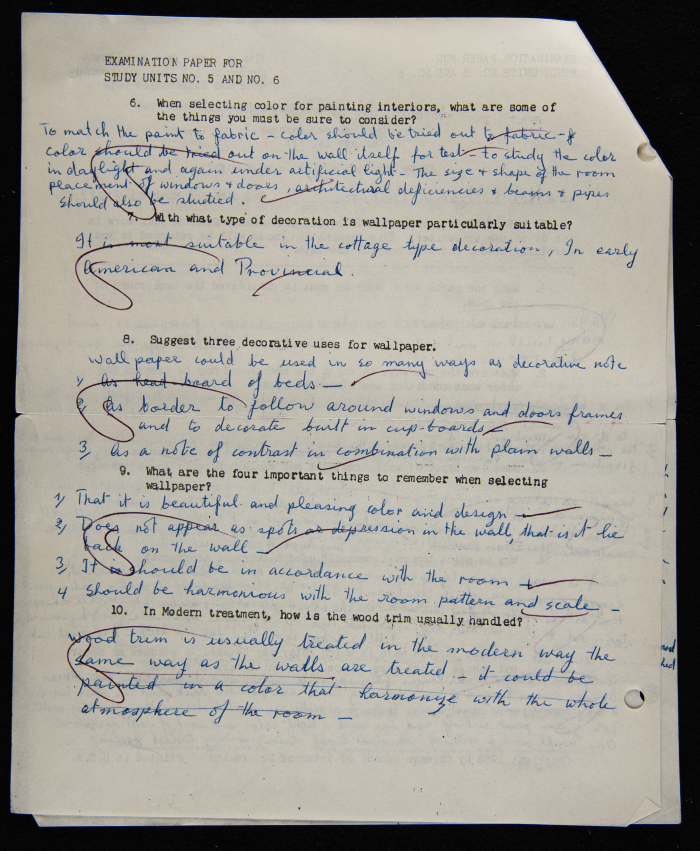 EXAMINATION PAPER FOR
STUDY UNITS NO. 5 AND NO. 6
6. When selecting color for painting interiors, what are some of
the things you must be sure to consider?
To match the paint to fabric - color should be tried out to fabric - &
color should be tried out on the wall itself for test - to study the color
in daylight and again under artificial light - The size & shape of the room
placement of windows & doors, architectural deficiencies & beams & pipes
should also be studied.
7. With what type of decoration is wallpaper particularly suitable?
It is most suitable in the cottage type decoration, In early
American and Provincial.
8. Suggest three decorative uses for wallpaper.
Wall paper could be used in so many ways as decorative note
1, As head board of beds -
2, As border to follow around windows and doors frames
and to decorate built in cup-boards -
3, As a note of contrast in combination with plain walls -
9. What are the four important things to remember when selecting
wallpaper?
1, That it is beautiful and pleasing color and design -
2, Does not appear as spots or depression in the wall, that is it lie
back on the wall -
3, It is should be in accordance with the room -
4 Should be harmonious with the room pattern and scale -
10. In Modern treatment, how is the wood trim usually handled?
Wood trim is usually treated in the modern way the
same way as the walls are treated - it could be
painted in a color that harmonize with the whole
atmosphere of the room -